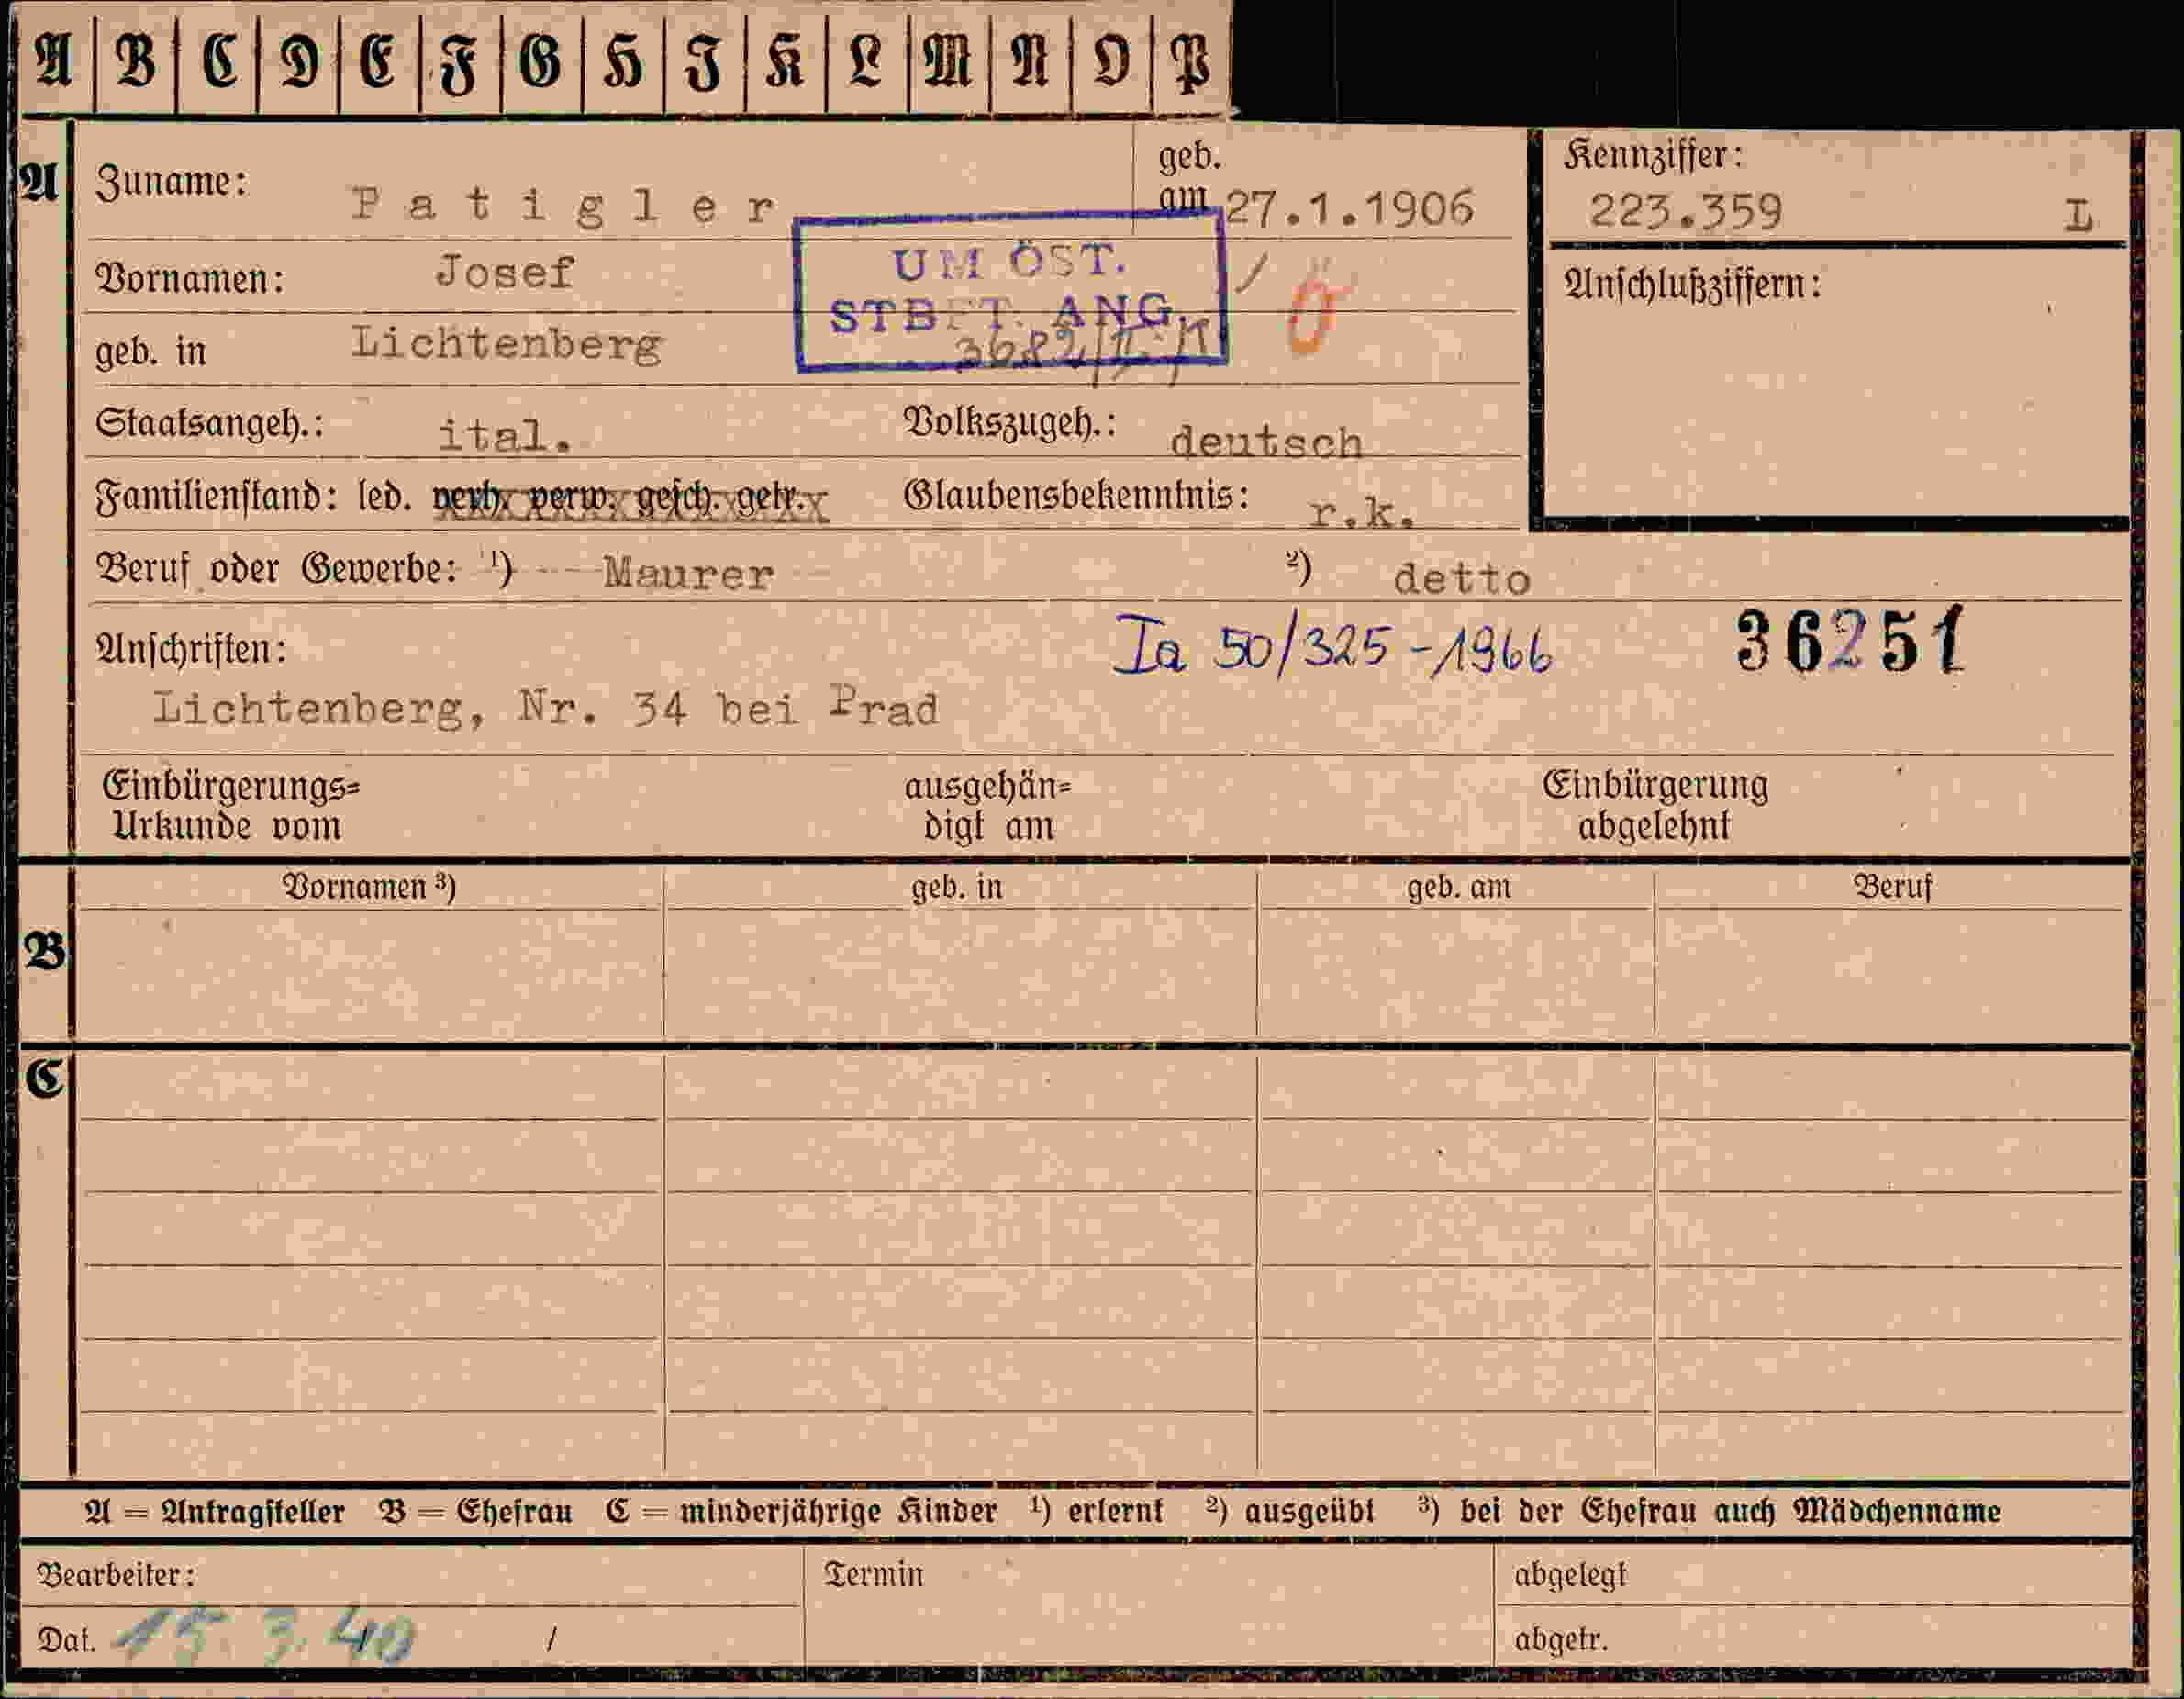 A B C D E F G H I K L M N O P
A Zuname: Patigler geb. am 27.1.1906 Kennziffer: 223.359 L
Vornamen: Josef
UM ÖST.
STBFT. ANG.
Ö
Anschlußziffern:
geb. in Lichtenberg
Staatsangeh.: ital. Volkszugeh.: deutsch
Familienstand: led. verh. verw. gesch. getr. Glaubensbekenntnis: r.k.
Beruf oder Gewerbe: ¹) Maurer ²) detto
Anschriften: Ia 50/325-1966 36251
Lichtenberg, Nr. 34 bei Prad
Einbürgerungs= ausgehän= Einbürgerung
Urkunde vom digt am abgelehnt
Vornamen ³) geb. in geb. am Beruf
B
C
A = Antragsteller B = Ehefrau C = minderjährige Kinder ¹) erlernt ²) ausgeübt ³) bei der Ehefrau auch Mädchenname
Bearbeiter: Termin abgelegt
Dat. 15.3.40 / abgetr.